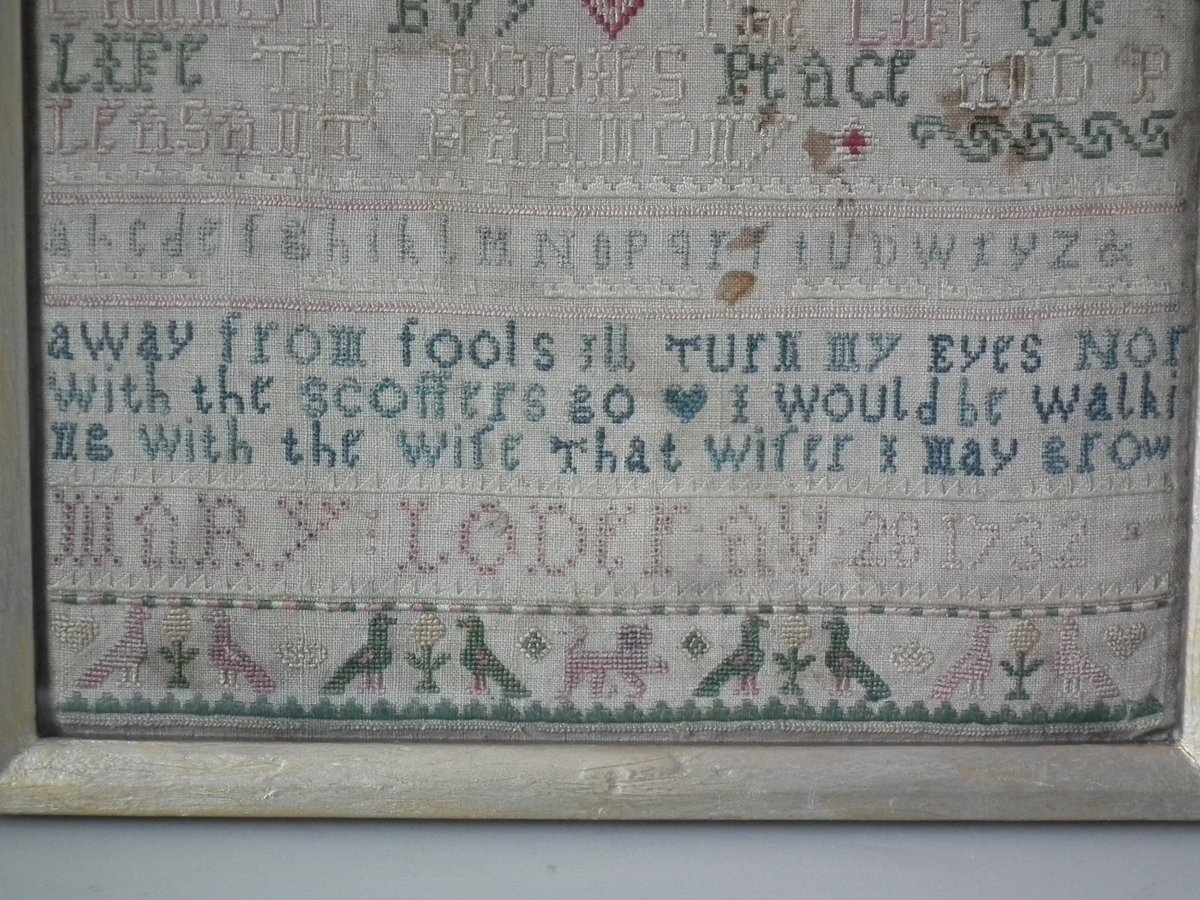 CANNOT BVY THE LIFE OF
LIFE THE BODIES PEACE AND P
LEASANT HARMONY
a b c d e f g h i k l M N O P q r ſ t U v W x y Z &
away from fools ill Turn my Eyes Nor
with the scoffers go I would be walki
ng with the wiſe That wiſer I may grow
MARY : LODEL : AV : 28 1732